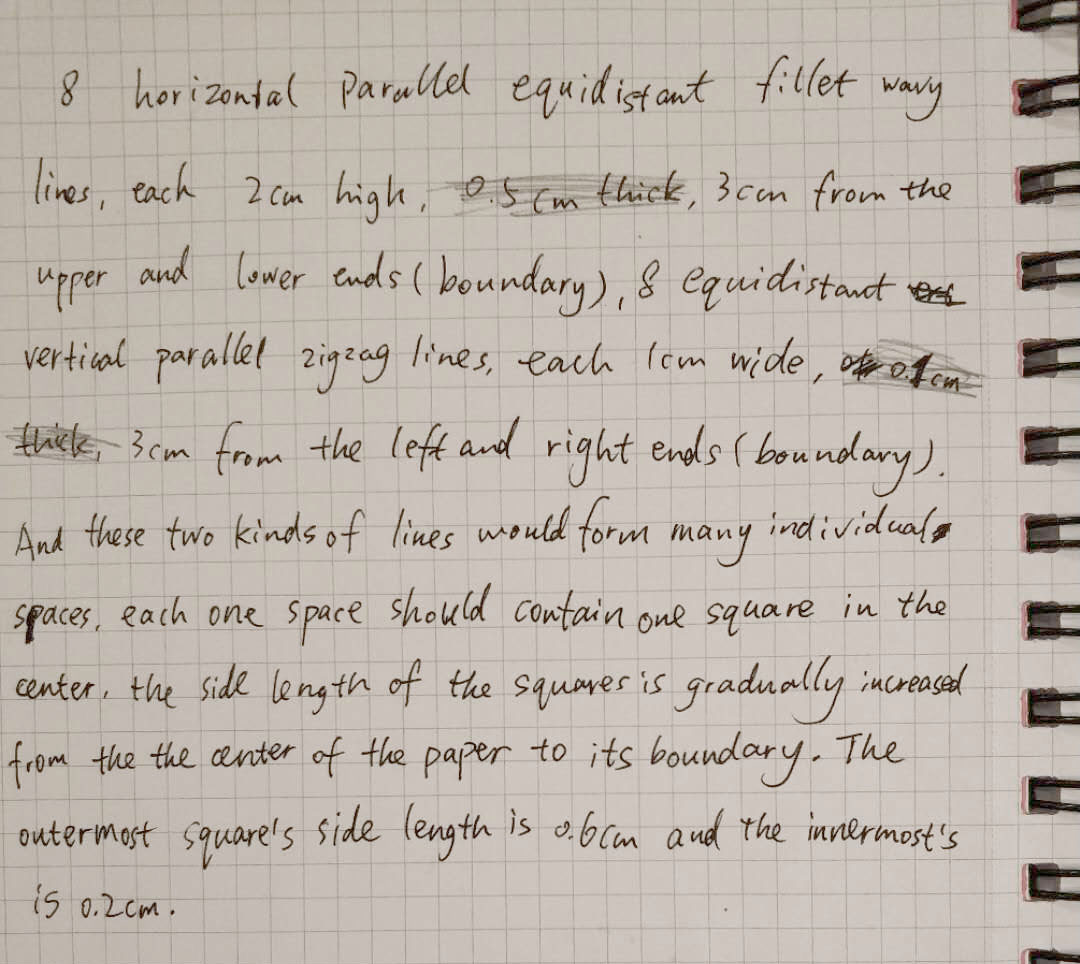 8 horizontal parallel equidistant fillet wavy
lines, each 2cm high, 0.5cm thick, 3cm from the
upper and lower ends (boundary), 8 equidistant
vertical parallel zigzag lines, each 1cm wide, 0.1cm
thick, 3cm from the left and right ends (boundary).
And these two kinds of lines would form many individual
spaces, each one space should contain one square in the
center, the side length of the squares is gradually increased
from the the center of the paper to its boundary. The
outermost square's side length is 0.6cm and the innermost's
is 0.2cm.